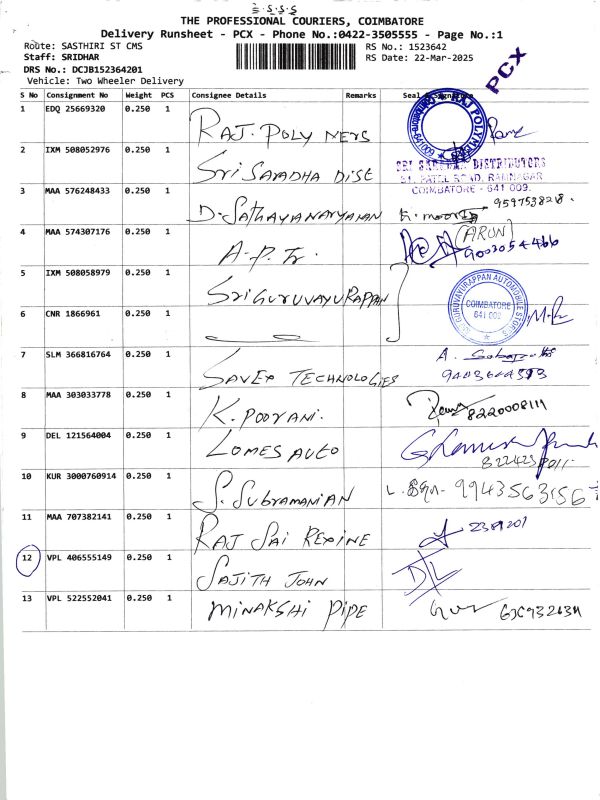 THE PROFESSIONAL COURIERS, COIMBATORE
Delivery Runsheet - PCX - Phone No.:0422-3505555 - Page No.:1
Route: SASTHIRI ST CMS
Staff: SRIDHAR
DRS No.: DCJB152364201
Vehicle: Two Wheeler Delivery
RS No.: 1523642
RS Date: 22-Mar-2025
PCX
S No Consignment No Weight PCS Consignee Details Remarks Seal &
1 EDQ 25669320 0.250 1 RAJ POLY MERS
2 IXM 508052976 0.250 1 Sri Saradha Dist
DISTRIBUTORS
COIMBATORE - 641 009.
3 MAA 576248433 0.250 1 D. Sathayanarayanan 9597538218.
4 MAA 574307176 0.250 1 A.P. Tr. (ARUN)
5 IXM 508058979 0.250 1 Sri Guruvayurappan
GURUVAYURAPPAN AUTOMOBILE STORES
COIMBATORE
641 002
6 CNR 1866961 0.250 1
7 SLM 366816764 0.250 1 Savex Technologies
8 MAA 303033778 0.250 1 K. Poovani. 8220008111
9 DEL 121564004 0.250 1 LOMES AUTO
10 KUR 3000760914 0.250 1 S. Subramanian
11 MAA 707382141 0.250 1 RAJ SAI REXINE
12 VPL 406555149 0.250 1 SAJITH JOHN
13 VPL 522552041 0.250 1 MINAKSHI PIPE